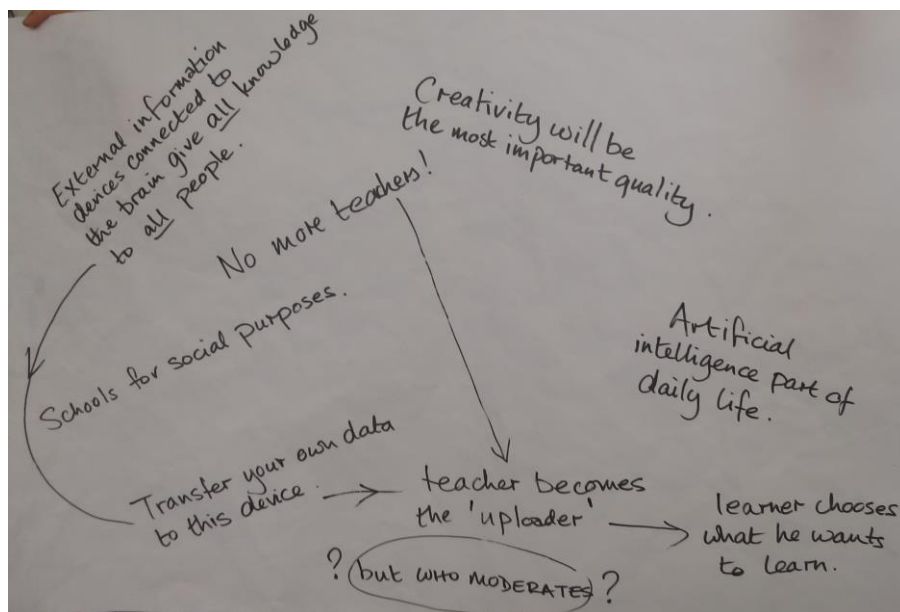 External information
devices connected to
the brain give all knowledge
to all people.
Creativity will be
the most important quality.
No more teachers!
Schools for social purposes.
Artificial
intelligence part of
daily life.
Transfer your own data
to this device.
teacher becomes
the 'uploader'
learner chooses
what he wants
to learn.
? but WHO MODERATES ?